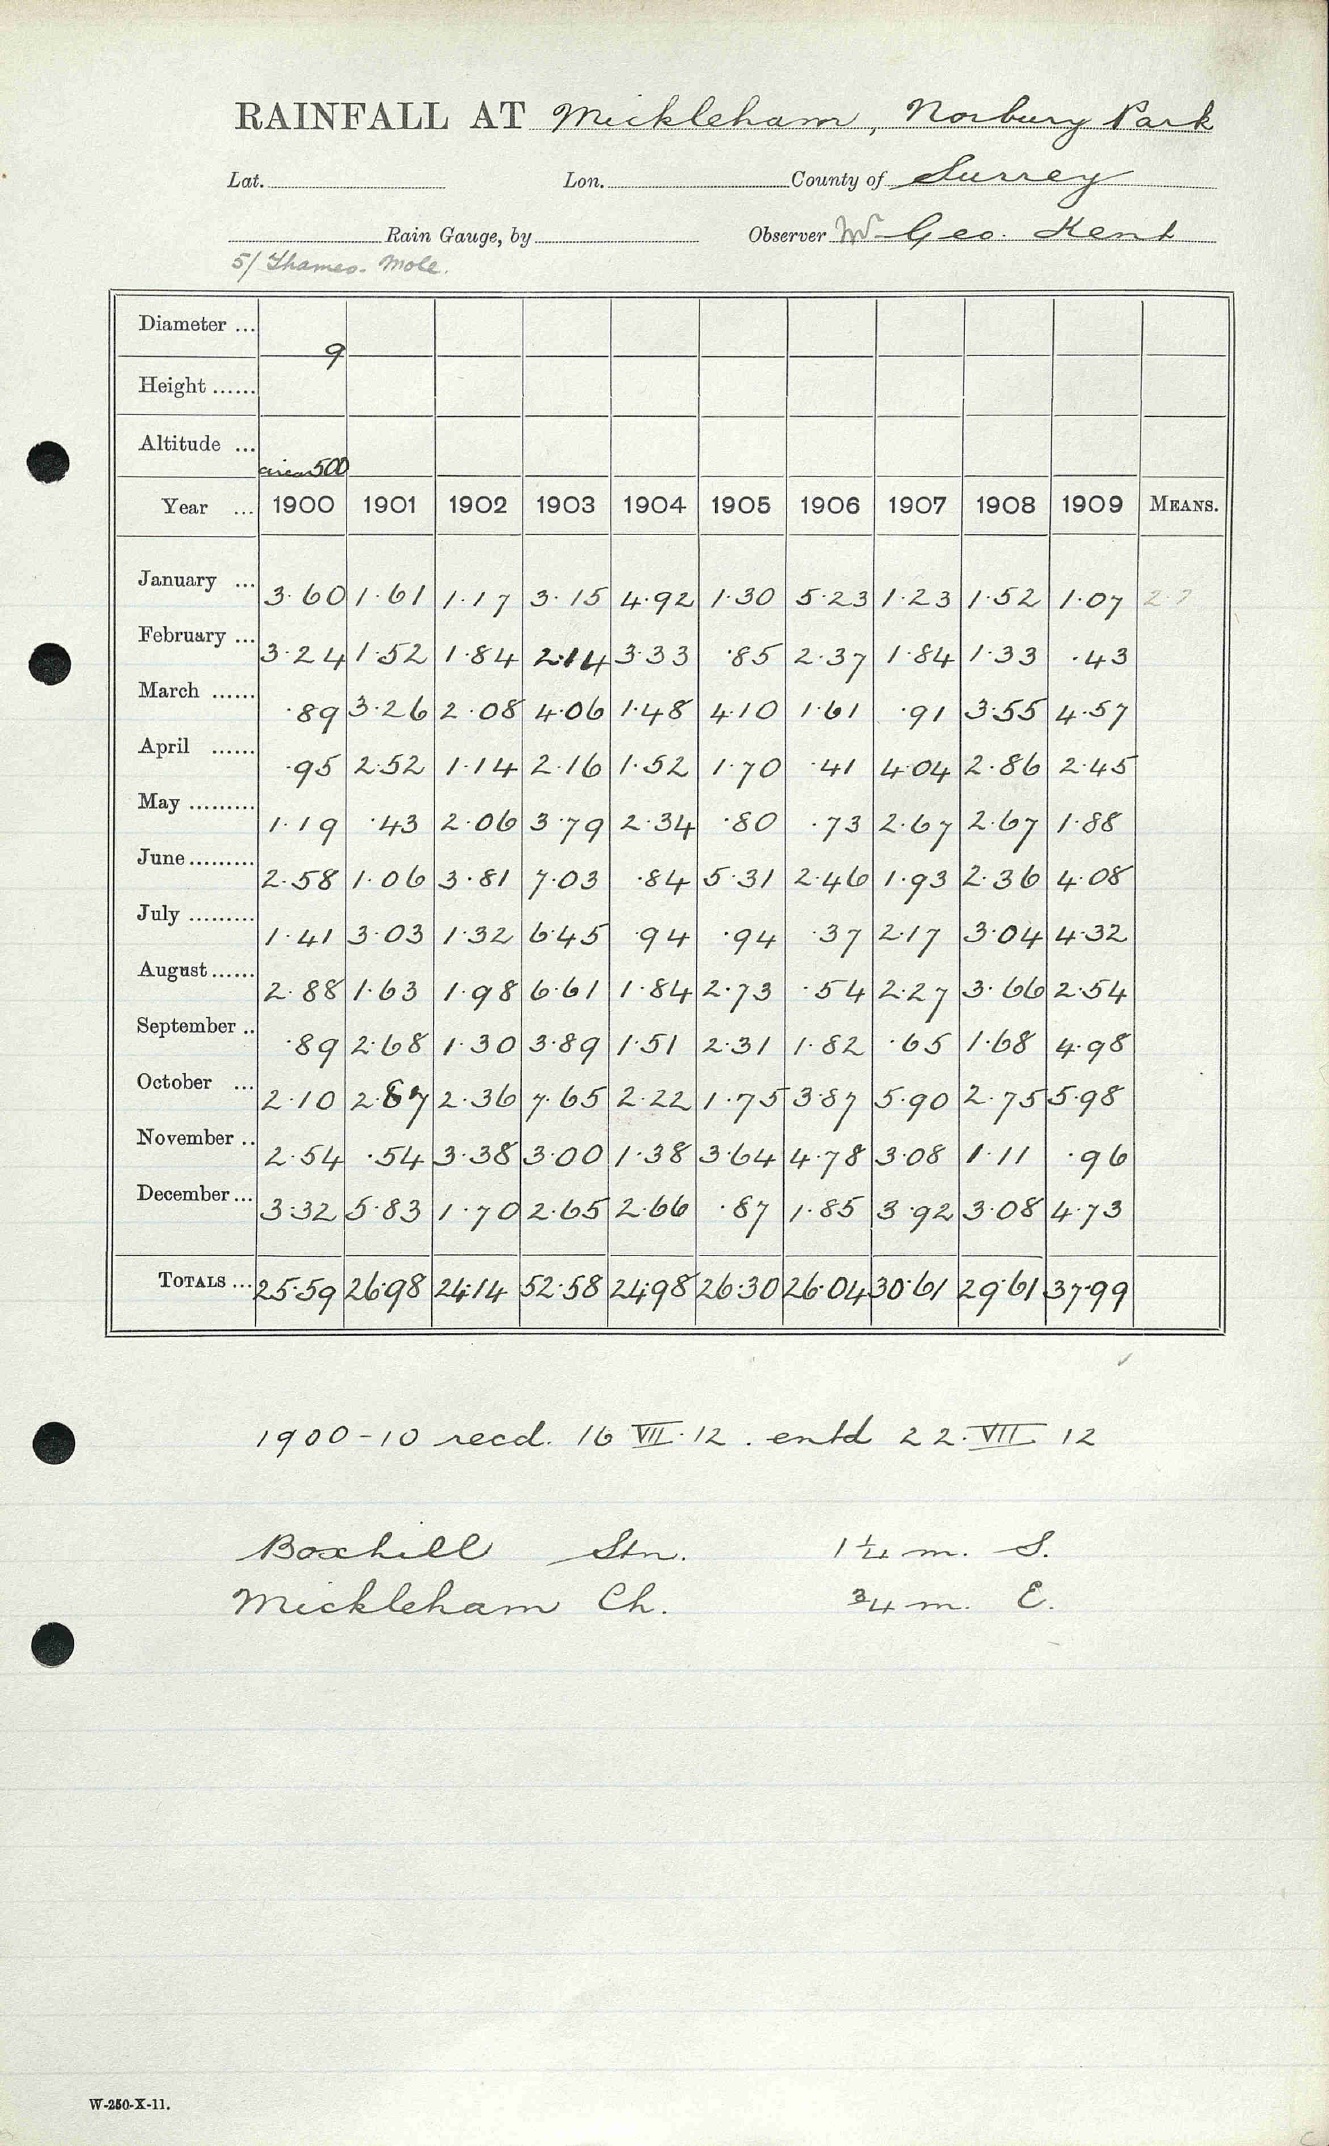 RAINFALL AT Mickleham, Norbury Park
Lat. Lon. County of Surrey
Rain Gauge, by Observer Mr Geo. Kent
5/ Thames. Mole.
Diameter ...
9
Height ......
Altitude ...
circa 500
Year ... 1900 1901 1902 1903 1904 1905 1906 1907 1908 1909 MEANS.
January ... 3.60 1.61 1.17 3.15 4.92 1.30 5.23 1.23 1.52 1.07 2.7
February ... 3.24 1.52 1.84 2.14 3.33 .85 2.37 1.84 1.33 .43
March ...... .89 3.26 2.08 4.06 1.48 4.10 1.61 .91 3.55 4.57
April ...... .95 2.52 1.14 2.16 1.52 1.70 .41 4.04 2.86 2.45
May ......... 1.19 .43 2.06 3.79 2.34 .80 .73 2.67 2.67 1.88
June ......... 2.58 1.06 3.81 7.03 .84 5.31 2.46 1.93 2.36 4.08
July ......... 1.41 3.03 1.32 6.45 .94 .94 .37 2.17 3.04 4.32
August ...... 2.88 1.63 1.98 6.61 1.84 2.73 .54 2.27 3.66 2.54
September .. .89 2.68 1.30 3.89 1.51 2.31 1.82 .65 1.68 4.98
October ... 2.10 2.87 2.36 7.65 2.22 1.75 3.87 5.90 2.75 5.98
November .. 2.54 .54 3.38 3.00 1.38 3.64 4.78 3.08 1.11 .96
December ... 3.32 5.83 1.70 2.65 2.66 .87 1.85 3.92 3.08 4.73
TOTALS ... 25.59 26.98 24.14 52.58 24.98 26.30 26.04 30.61 29.61 37.99
1900-10 recd. 16 VII. 12. entd 22. VII 12
Boxhill Stn. 1 1/4 m. S.
Mickleham Ch. 3/4 m. E.
W-250-X-11.